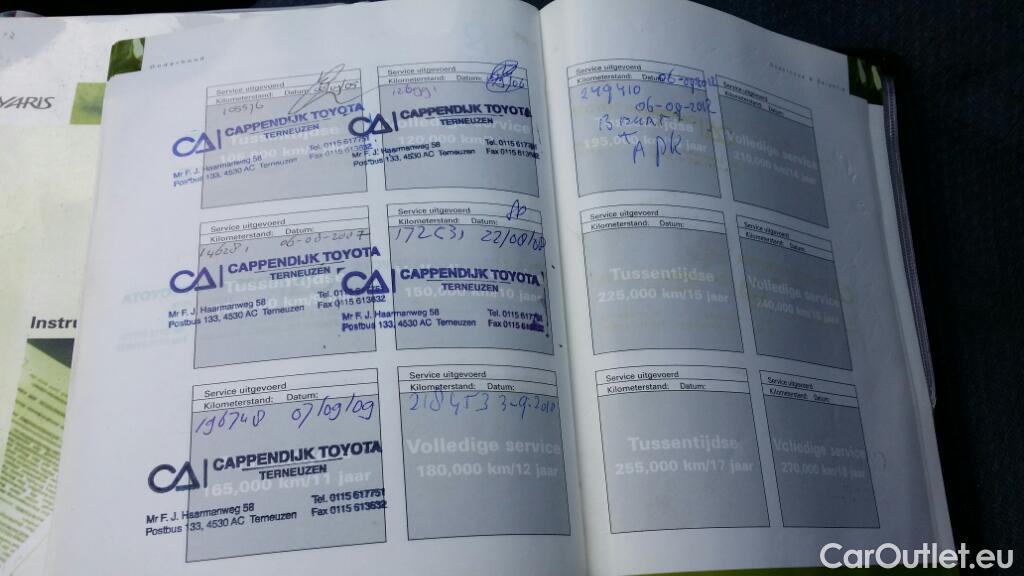 YARIS
Instru
Onderhoud
Service uitgevoerd
Kilometerstand: Datum:
105576
CAPPENDIJK TOYOTA
TERNEUZEN
Mr F. J. Haarmanweg 58
Tel. 0115 617751
Postbus 133, 4530 AC Terneuzen
Fax 0115 613632
Service uitgevoerd
Kilometerstand: Datum:
126991
CAPPENDIJK TOYOTA
TERNEUZEN
Mr F. J. Haarmanweg 58
Tel. 0115 617751
Postbus 133, 4530 AC Terneuzen
Fax 0115 613632
Service uitgevoerd
Kilometerstand: Datum:
146281 06-08-2007
CAPPENDIJK TOYOTA
TERNEUZEN
Mr F. J. Haarmanweg 58
Tel. 0115 617751
Postbus 133, 4530 AC Terneuzen
Fax 0115 613632
Service uitgevoerd
Kilometerstand: Datum:
22/08/08
CAPPENDIJK TOYOTA
TERNEUZEN
150,000 km/10 jaar
Mr F. J. Haarmanweg 58
Tel. 0115 617751
Postbus 133, 4530 AC Terneuzen
Fax 0115 613632
Service uitgevoerd
Kilometerstand: Datum:
196748 07/09/09
CAPPENDIJK TOYOTA
TERNEUZEN
165,000 km/11 jaar
Mr F. J. Haarmanweg 58
Tel. 0115 617751
Postbus 133, 4530 AC Terneuzen
Fax 0115 613632
Service uitgevoerd
Kilometerstand: Datum:
218453 3-9-2010
Volledige service
180,000 km/12 jaar
Onderhoud & Garantie
Service uitgevoerd
Kilometerstand: Datum:
249410
06-09-2012
Beurt
+ APK
Service uitgevoerd
Kilometerstand: Datum:
Volledige service
210,000 km/14 jaar
Service uitgevoerd
Kilometerstand: Datum:
Tussentijdse
225,000 km/15 jaar
Service uitgevoerd
Kilometerstand: Datum:
Volledige service
240,000 km/16 jaar
Service uitgevoerd
Kilometerstand: Datum:
Tussentijdse
255,000 km/17 jaar
Service uitgevoerd
Kilometerstand: Datum:
Volledige service
270,000 km/18 jaar
CarOutlet.eu